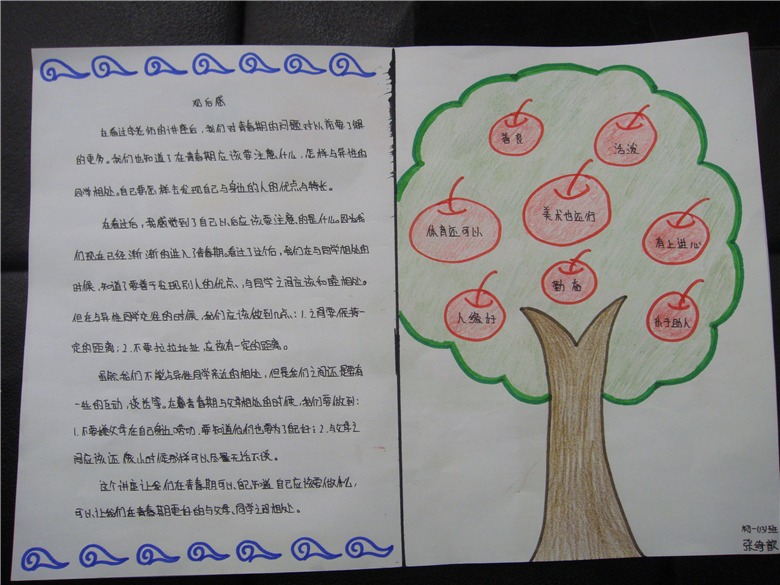 观后感
在看过李老师的讲座后，我们对青春期的问题可以说有了解
的更多。我们也知道了在青春期应该要注意什么，怎样与异性的
同学相处。自己要怎样去发现自己与身边的人的优点与特长。
在看过后，我感觉到了自己以后应该要注意的是什么。因为我
们现在已经渐渐的进入了青春期。看过了这个后，我们在与同学相处的
时候，知道了要善于发现别人的优点，与同学之间应该和睦相处。
但在与异性同学交往的时候，我们应该做到几点：1.之间要保持一
定的距离；2.不要拉拉扯扯，应该有一定的距离。
虽然我们不能与异性同学亲近的相处，但是我们之间还是要有
一些的互动，谈话等。在青春期与父母相处的时候，我们要做到：
1.不要嫌父母在自己身边唠叨，要知道他们也要为了自己好；2.与父母之
间应该还像小时候那样可以尽量无话不谈。
这个讲座让我们在青春期可以知道自己应该要做什么，
可以让我们在青春期更好的与父母、同学之间相处。
善良
活泼
体育还可以
美术也还行
有上进心
勤奋
人缘好
乐于助人
初一(3)班